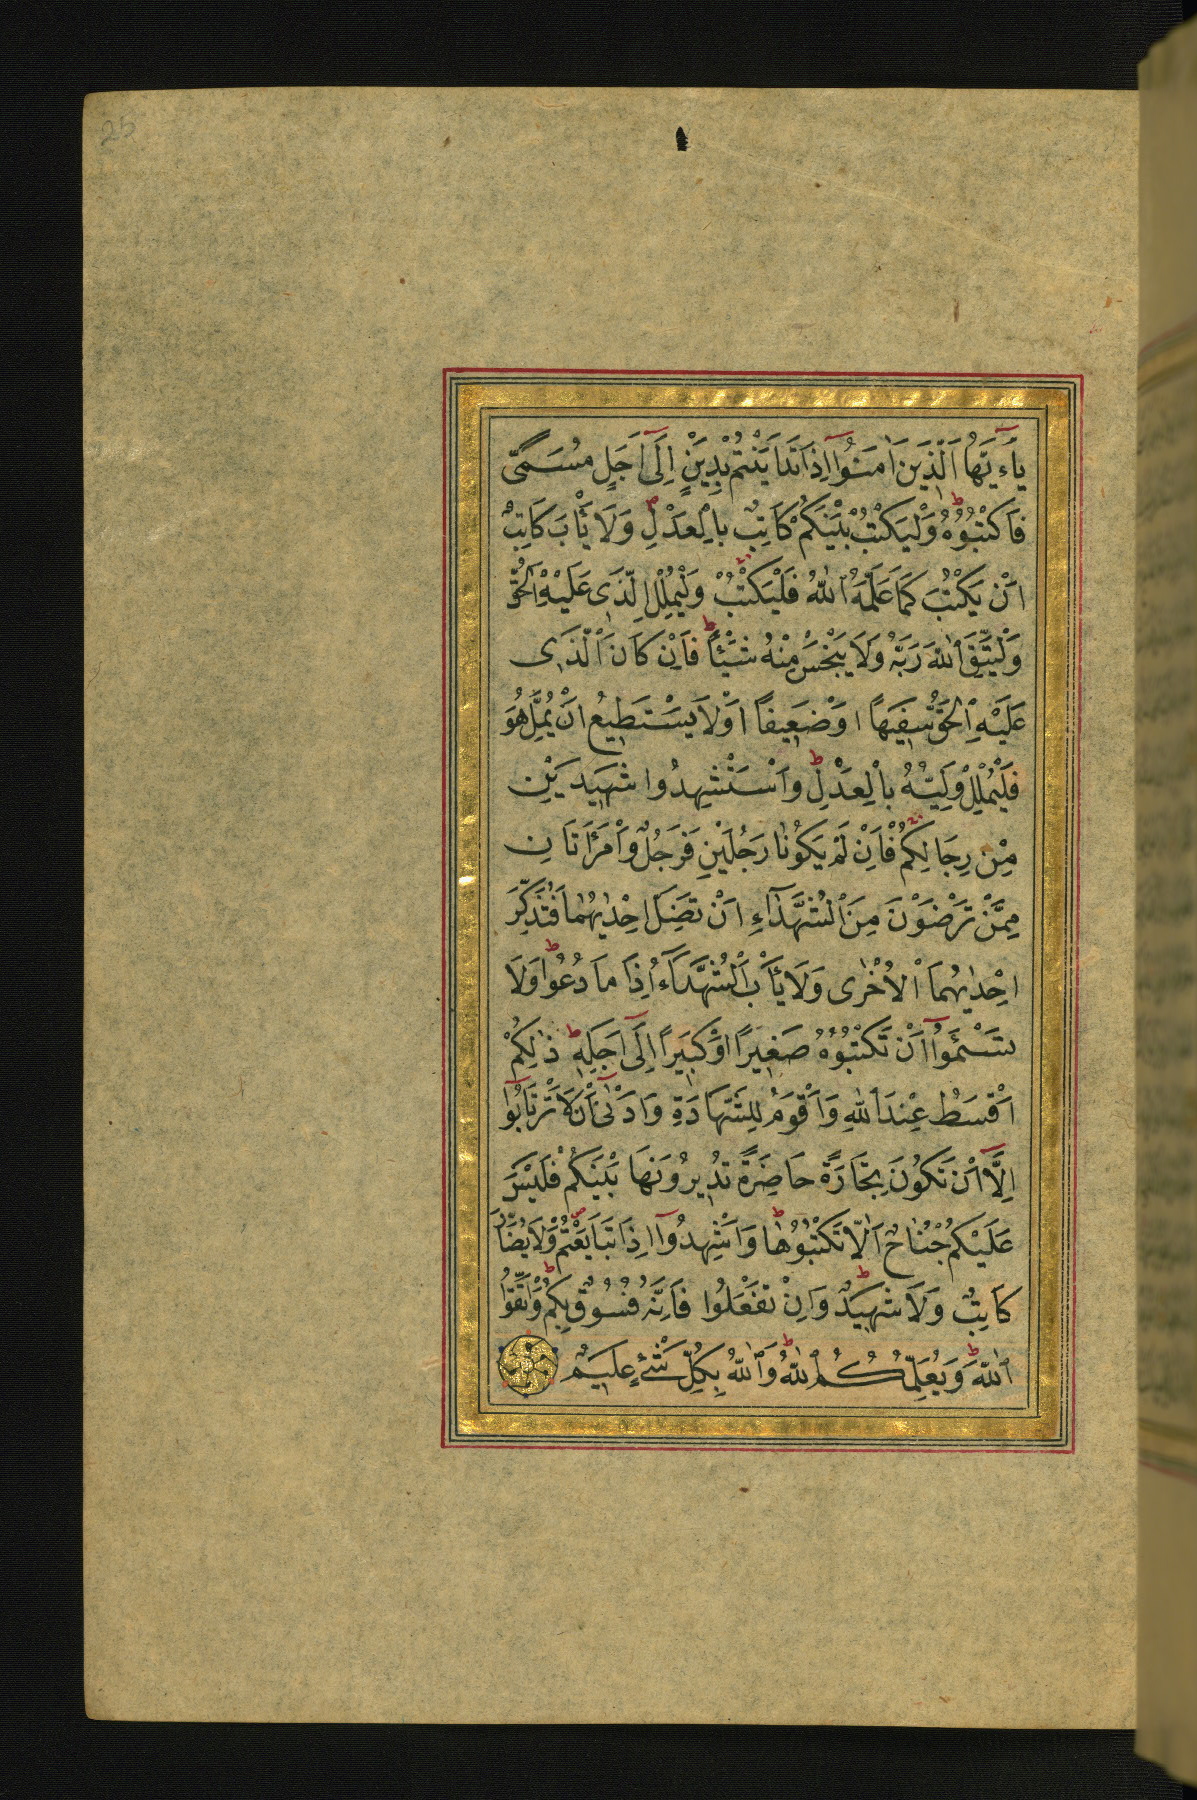 25
يَٓاءَيُّهَا الَّذِينَ اٰمَنُوٓا اِذَا تَدَايَنْتُمْ بِدَيْنٍ اِلٰٓى اَجَلٍ مُسَمًّى
فَاكْتُبُوهُ ط وَلْيَكْتُبْ بَيْنَكُمْ كَاتِبٌ بِالْعَدْلِ ص وَلَا يَأْبَ كَاتِبٌ
اَنْ يَكْتُبَ كَمَا عَلَّمَهُ اللّٰهُ فَلْيَكْتُبْ وَلْيُمْلِلِ الَّذِى عَلَيْهِ الْحَقُّ
وَلْيَتَّقِ اللّٰهَ رَبَّهُ وَلَا يَبْخَسْ مِنْهُ شَيْئًا ط فَاِنْ كَانَ الَّذِى
عَلَيْهِ الْحَقُّ سَفِيهًا اَوْ ضَعِيفًا اَوْ لَا يَسْتَطِيعُ اَنْ يُمِلَّ هُوَ
فَلْيُمْلِلْ وَلِيُّهُ بِالْعَدْلِ ط وَاسْتَشْهِدُوا شَهِيدَيْنِ
مِنْ رِجَالِكُمْ فَاِنْ لَمْ يَكُونَا رَجُلَيْنِ فَرَجُلٌ وَامْرَاَتَانِ
مِمَّنْ تَرْضَوْنَ مِنَ الشُّهَدَٓاءِ اَنْ تَضِلَّ اِحْدٰيهُمَا فَتُذَكِّرَ
اِحْدٰيهُمَا الْاُخْرٰى وَلَا يَأْبَ الشُّهَدَٓاءُ اِذَا مَا دُعُوا ط وَلَا
تَسْـَٔمُوٓا اَنْ تَكْتُبُوهُ صَغِيرًا اَوْ كَبِيرًا اِلٰٓى اَجَلِهِ ط ذٰلِكُمْ
اَقْسَطُ عِنْدَ اللّٰهِ وَاَقْوَمُ لِلشَّهَادَةِ وَاَدْنٰٓى اَنْ لَا تَرْتَابُٓوا
اِلَّٓا اَنْ تَكُونَ تِجَارَةً حَاضِرَةً تُدِيرُونَهَا بَيْنَكُمْ فَلَيْسَ
عَلَيْكُمْ جُنَاحٌ اَلَّا تَكْتُبُوهَا ط وَاَشْهِدُوٓا اِذَا تَبَايَعْتُمْ ص وَلَا يُضَٓارَّ
كَاتِبٌ وَلَا شَهِيدٌ ط وَاِنْ تَفْعَلُوا فَاِنَّهُ فُسُوقٌ بِكُمْ ط وَاتَّقُوا
اللّٰهَ ط وَيُعَلِّمُكُمُ اللّٰهُ ط وَاللّٰهُ بِكُلِّ شَىْءٍ عَلِيمٌ